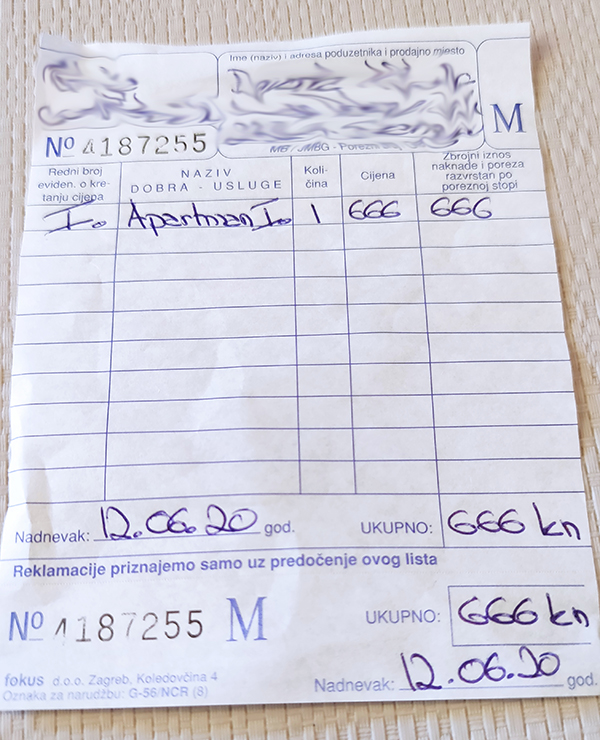 Ime (naziv) i adresa poduzetnika i prodajno mjesto
Nº 4187255
MB / JMBG - Porezni
M
Redni broj eviden. o kre- tanju cijepa
NAZIV DOBRA - USLUGE
Koli- čina
Cijena
Zbrojni iznos naknade i poreza razvrstan po poreznoj stopi
I. Apartman I. 1 666 666
Nadnevak: 12.06.20 god. UKUPNO: 666 kn
Reklamacije priznajemo samo uz predočenje ovog lista
Nº 4187255 M UKUPNO: 666 kn
Nadnevak: 12.06.20 god.
fokus d.o.o. Zagreb, Koledovčina 4
Oznaka za narudžbu: G-56/NCR (8)